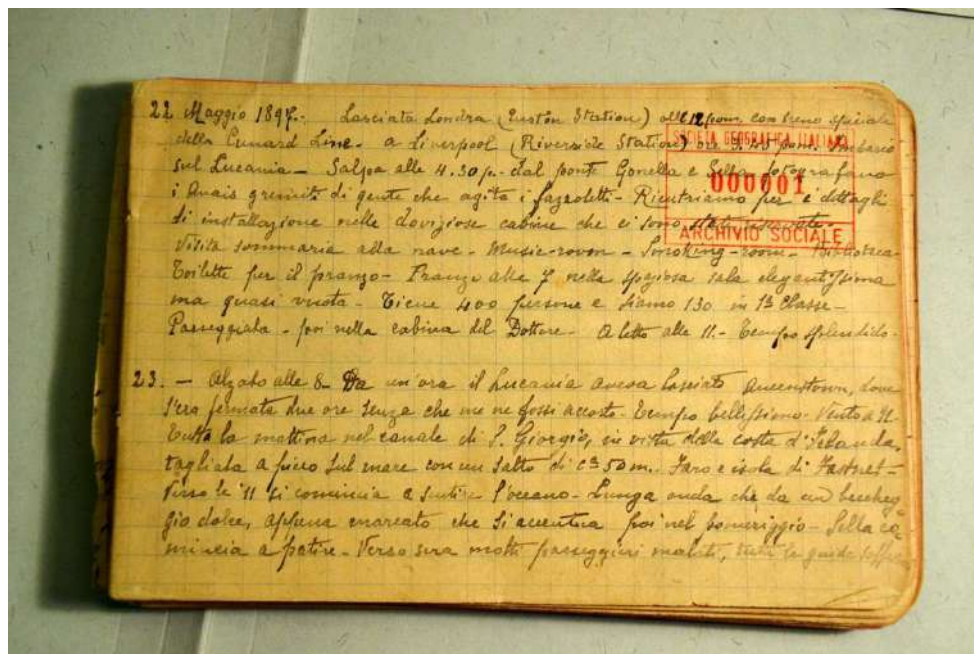 22 Maggio 1897.- Lasciata Londra (Euston Station) alle 12 pom. con treno speciale
della Cunard Line - a Liverpool (Riverside Station) ore pom. Imbarco
sul Lucania - Salpa alle 4.30 p. - dal ponte Gonella e Sella fotografano
i quais gremiti di gente che agita i fazzoletti - Rientriamo per i dettagli
di installazione nelle doviziose cabine che ci sono state
Visita sommaria alla nave - Music-room - Smoking-room - Biblioteca -
Toilette per il pranzo - Pranzo alle 7 nella spaziosa sala elegantissima
ma quasi vuota - Tiene 400 persone e siamo 130 in 1ª Classe -
Passeggiata - poi nella cabina del Dottore - A letto alle 11. - Tempo splendido -
23. - Alzato alle 8 - Da un'ora il Lucania aveva lasciato Queenstown, dove
s'era fermata due ore senza che me ne fossi accorto - Tempo bellissimo - Vento a N.
Tutta la mattina nel canale di S. Giorgio, in vista della costa d'Irlanda,
tagliata a picco sul mare con un salto di cª 50 m. Faro e isola di Fastnet -
Verso le 11 si comincia a sentire l'oceano - Lunga onda che da un beccheg
gio dolce, appena marcato che si accentua poi nel pomeriggio - Sella co
mincia a patire - Verso sera molti passeggieri malati, tutte le guide
SOCIETÀ GEOGRAFICA ITALIANA
000001
ARCHIVIO SOCIALE